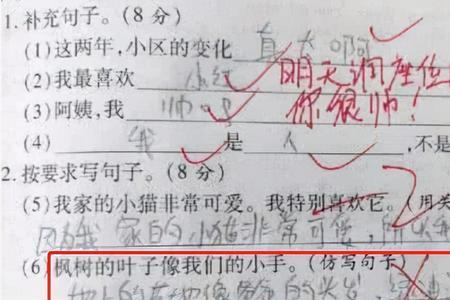 1.补充句子。(8分)
(1)这两年,小区的变化 真大啊
(2)我最喜欢 小红
(3)阿姨,我 帅 吗
明天调座位
你很帅!
(4) 我 是 人 ,不是
2.按要求写句子。(8分)
(5)我家的小猫非常可爱。我特别喜欢它。(用关
因为我家的小猫非常可爱,所以我
(6)枫树的叶子像我们的小手。(仿写句子)
地上的草地像爸爸的头发